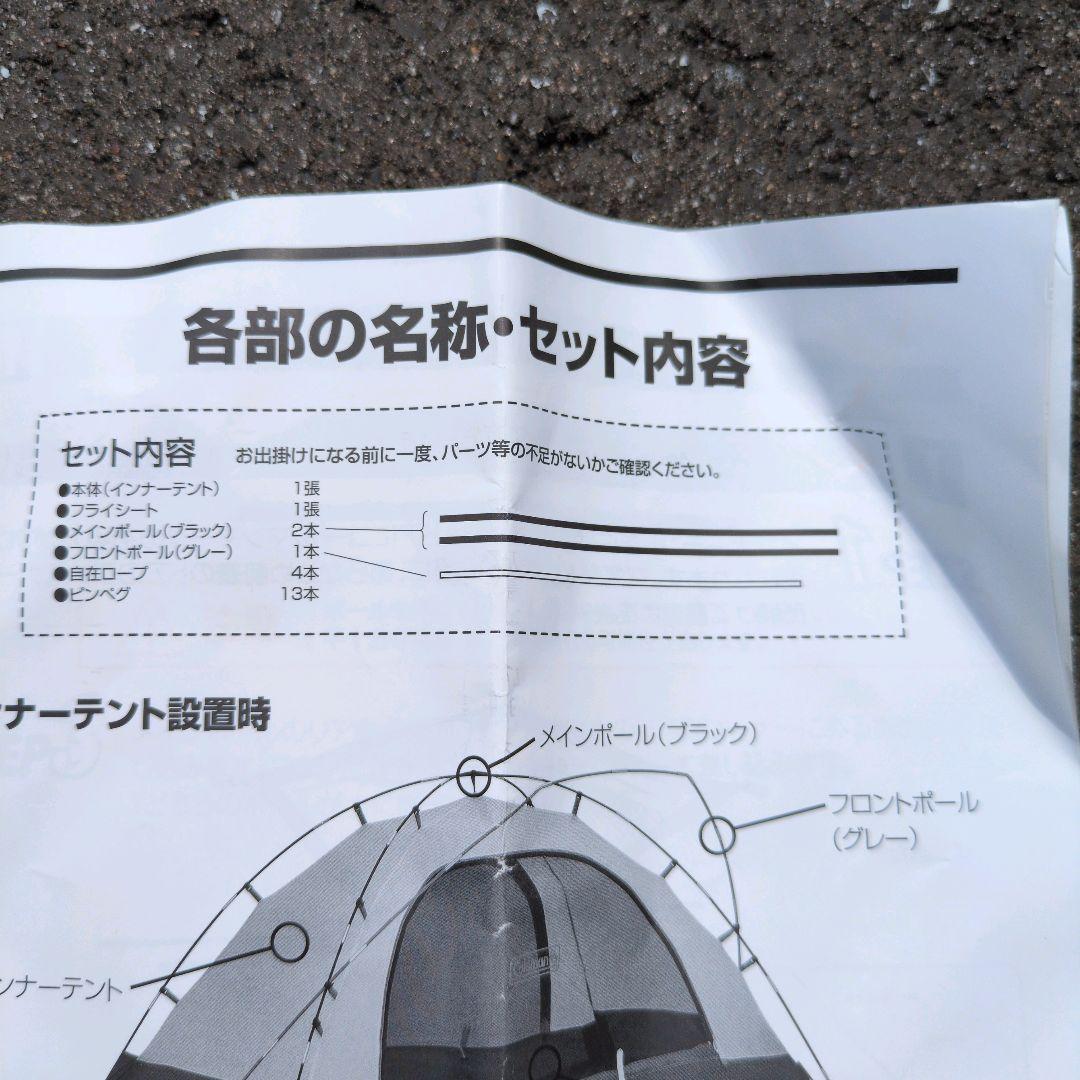 各部の名称・セット内容
セット内容 お出掛けになる前に一度、パーツ等の不足がないかご確認ください。
●本体(インナーテント) 1張
●フライシート 1張
●メインポール(ブラック) 2本
●フロントポール(グレー) 1本
●自在ロープ 4本
●ピンペグ 13本
ナーテント設置時
メインポール(ブラック)
フロントポール
(グレー)
ンナーテント